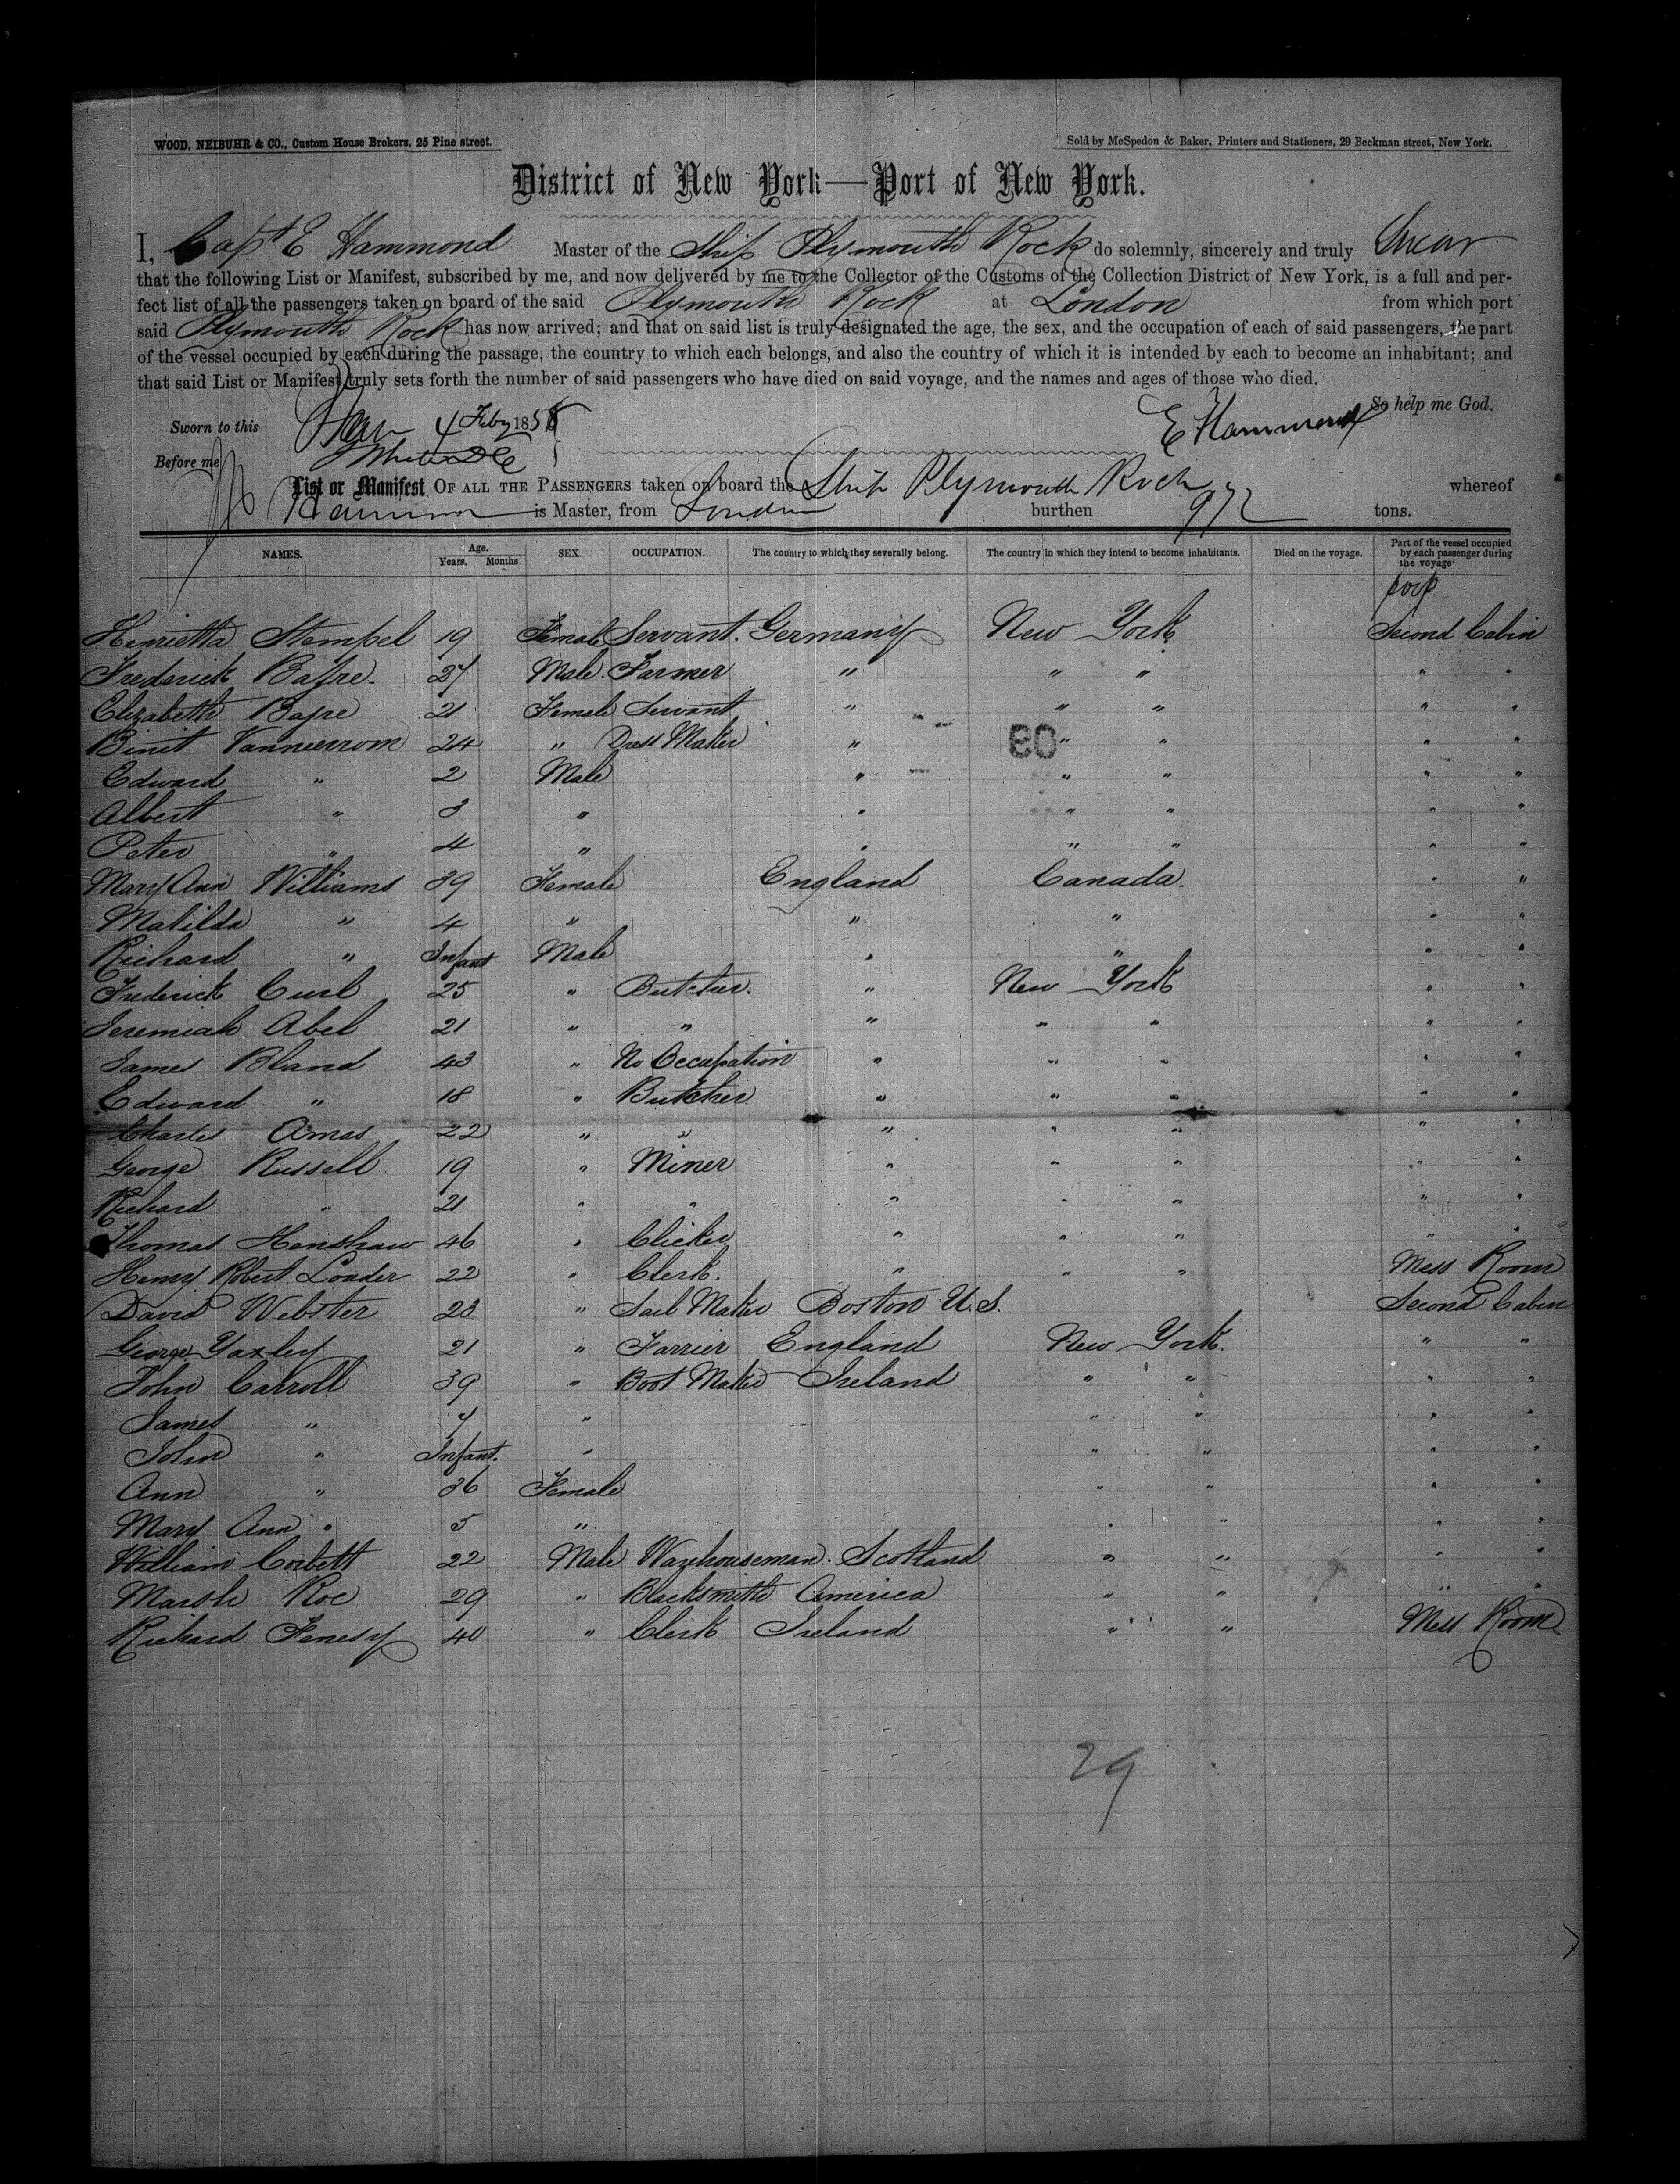 WOOD, NEIBUHR & CO., Custom House Brokers, 25 Pine street.
Sold by McSpedon & Baker, Printers and Stationers, 29 Beekman street, New York.
District of New York—Port of New York.
I, Capt E Hammond Master of the Ship Plymouth Rock do solemnly, sincerely and truly Swear
that the following List or Manifest, subscribed by me, and now delivered by me to the Collector of the Customs of the Collection District of New York, is a full and per-
fect list of all the passengers taken on board of the said Plymouth Rock at London from which port
said Plymouth Rock has now arrived; and that on said list is truly designated the age, the sex, and the occupation of each of said passengers, the part
of the vessel occupied by each during the passage, the country to which each belongs, and also the country of which it is intended by each to become an inhabitant; and
that said List or Manifest truly sets forth the number of said passengers who have died on said voyage, and the names and ages of those who died.
So help me God.
Sworn to this 4 Feby 1858
E Hammond
Before me
List or Manifest OF ALL THE PASSENGERS taken on board the Ship Plymouth Rock whereof
Hammond is Master, from London burthen 972 tons.
NAMES. Age. Years. Months SEX. OCCUPATION. The country to which they severally belong. The country in which they intend to become inhabitants. Died on the voyage. Part of the vessel occupied by each passenger during the voyage
Poop
Henrietta Stempel 19 Female Servant. Germany New York Second Cabin
Frederick 27 Male. Farmer " " " " "
Elizabeth 21 Female Servant " " " " "
24 " Dress Maker " " " " "
80
Edward " 2 Male " " " " "
Albert " 3 " " " " " "
Peter " 4 " " " " " "
Mary Ann Williams 39 Female England Canada. " "
Matilda " 4 " " " " "
Richard " Infant Male " " " "
Frederick Curl 25 " Butcher. " New York " "
Jeremiah Abel 21 " " " " " " "
James Bland 43 " No Occupation " " " " "
Edward " 18 " Butcher " " " " "
Charles Amas 22 " " " " " " "
George Russell 19 " Miner " " " " "
Richard " 21 " " " " " " "
Thomas Henshaw 46 " Clicker " " " " "
Henry Robert Loader 22 " Clerk. " " " Mess Room
David Webster 23 " Sail Maker Boston U.S. Second Cabin
George Yaxley 21 " Farrier England New York. " "
John Carroll 39 " Boot Maker Ireland " " " "
James " 7 " " " " "
John " Infant. " " " " "
Ann " 36 Female " " " "
Mary Ann " 5 " " " " "
William Corbett 22 Male Warehouseman. Scotland " " " "
Marsh Roe 29 " Blacksmith America " " " "
Richard Fenesy 40 " Clerk Ireland " " Mess Room
29